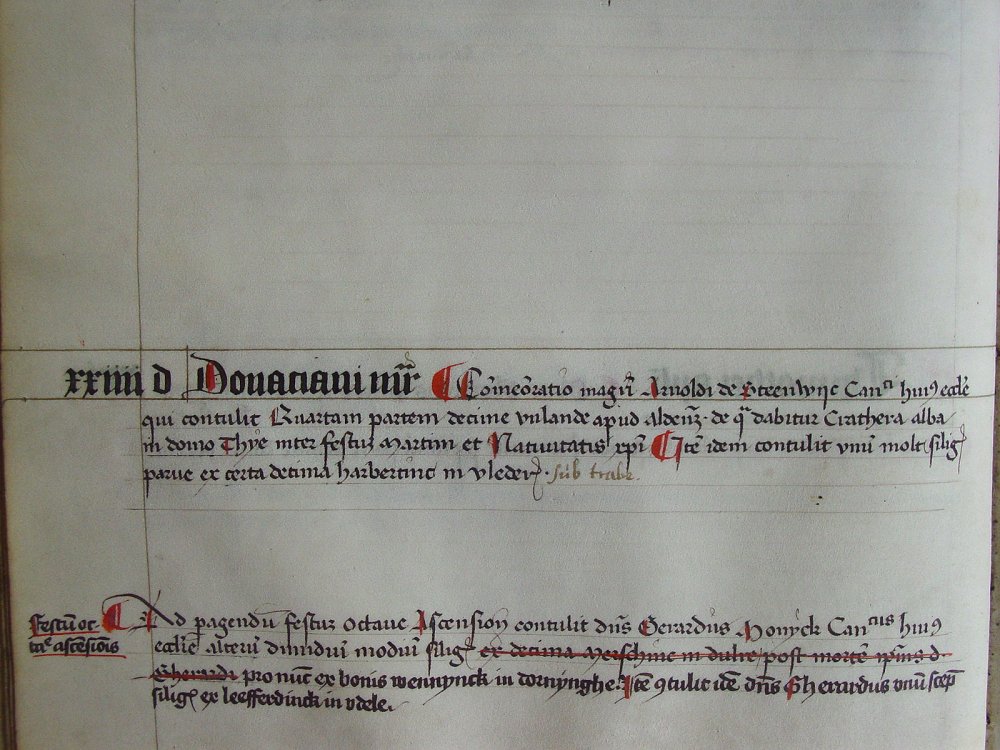 xxiiii d Donaciani mr̄ ¶ Com̄eoratio magr̄i Arnoldi de Steenwijc Canci huiꝰ eccl̄e
qui contulit Quartam partem decime vnlande apud aldenz̄· de qua dabitur Crathera alba
in domo Thye inter festuz Martini et Natiuitatis xpī ¶ Itē idem contulit vnū molt siliḡ
parue ex certa decima harbertinc in vleder̄· sub trabe.
Festū oc
taē ascēsiōis
¶ Ad pagendū festuz octaue Ascensioīs contulit dn̄s Gerardus Monyck Cancus huiꝰ
eccl̄ie alterū dimidiū modiū siliḡ ex decima Merschinc in dulre post mortē ip̄iuꝰ d.
Gherardi pro nūc ex bonis wennynck in dornynghe. Itē ꝯtulit idē dn̄s Gherardus vnū scep̄
siliḡ ex leefferdinck in vdele.